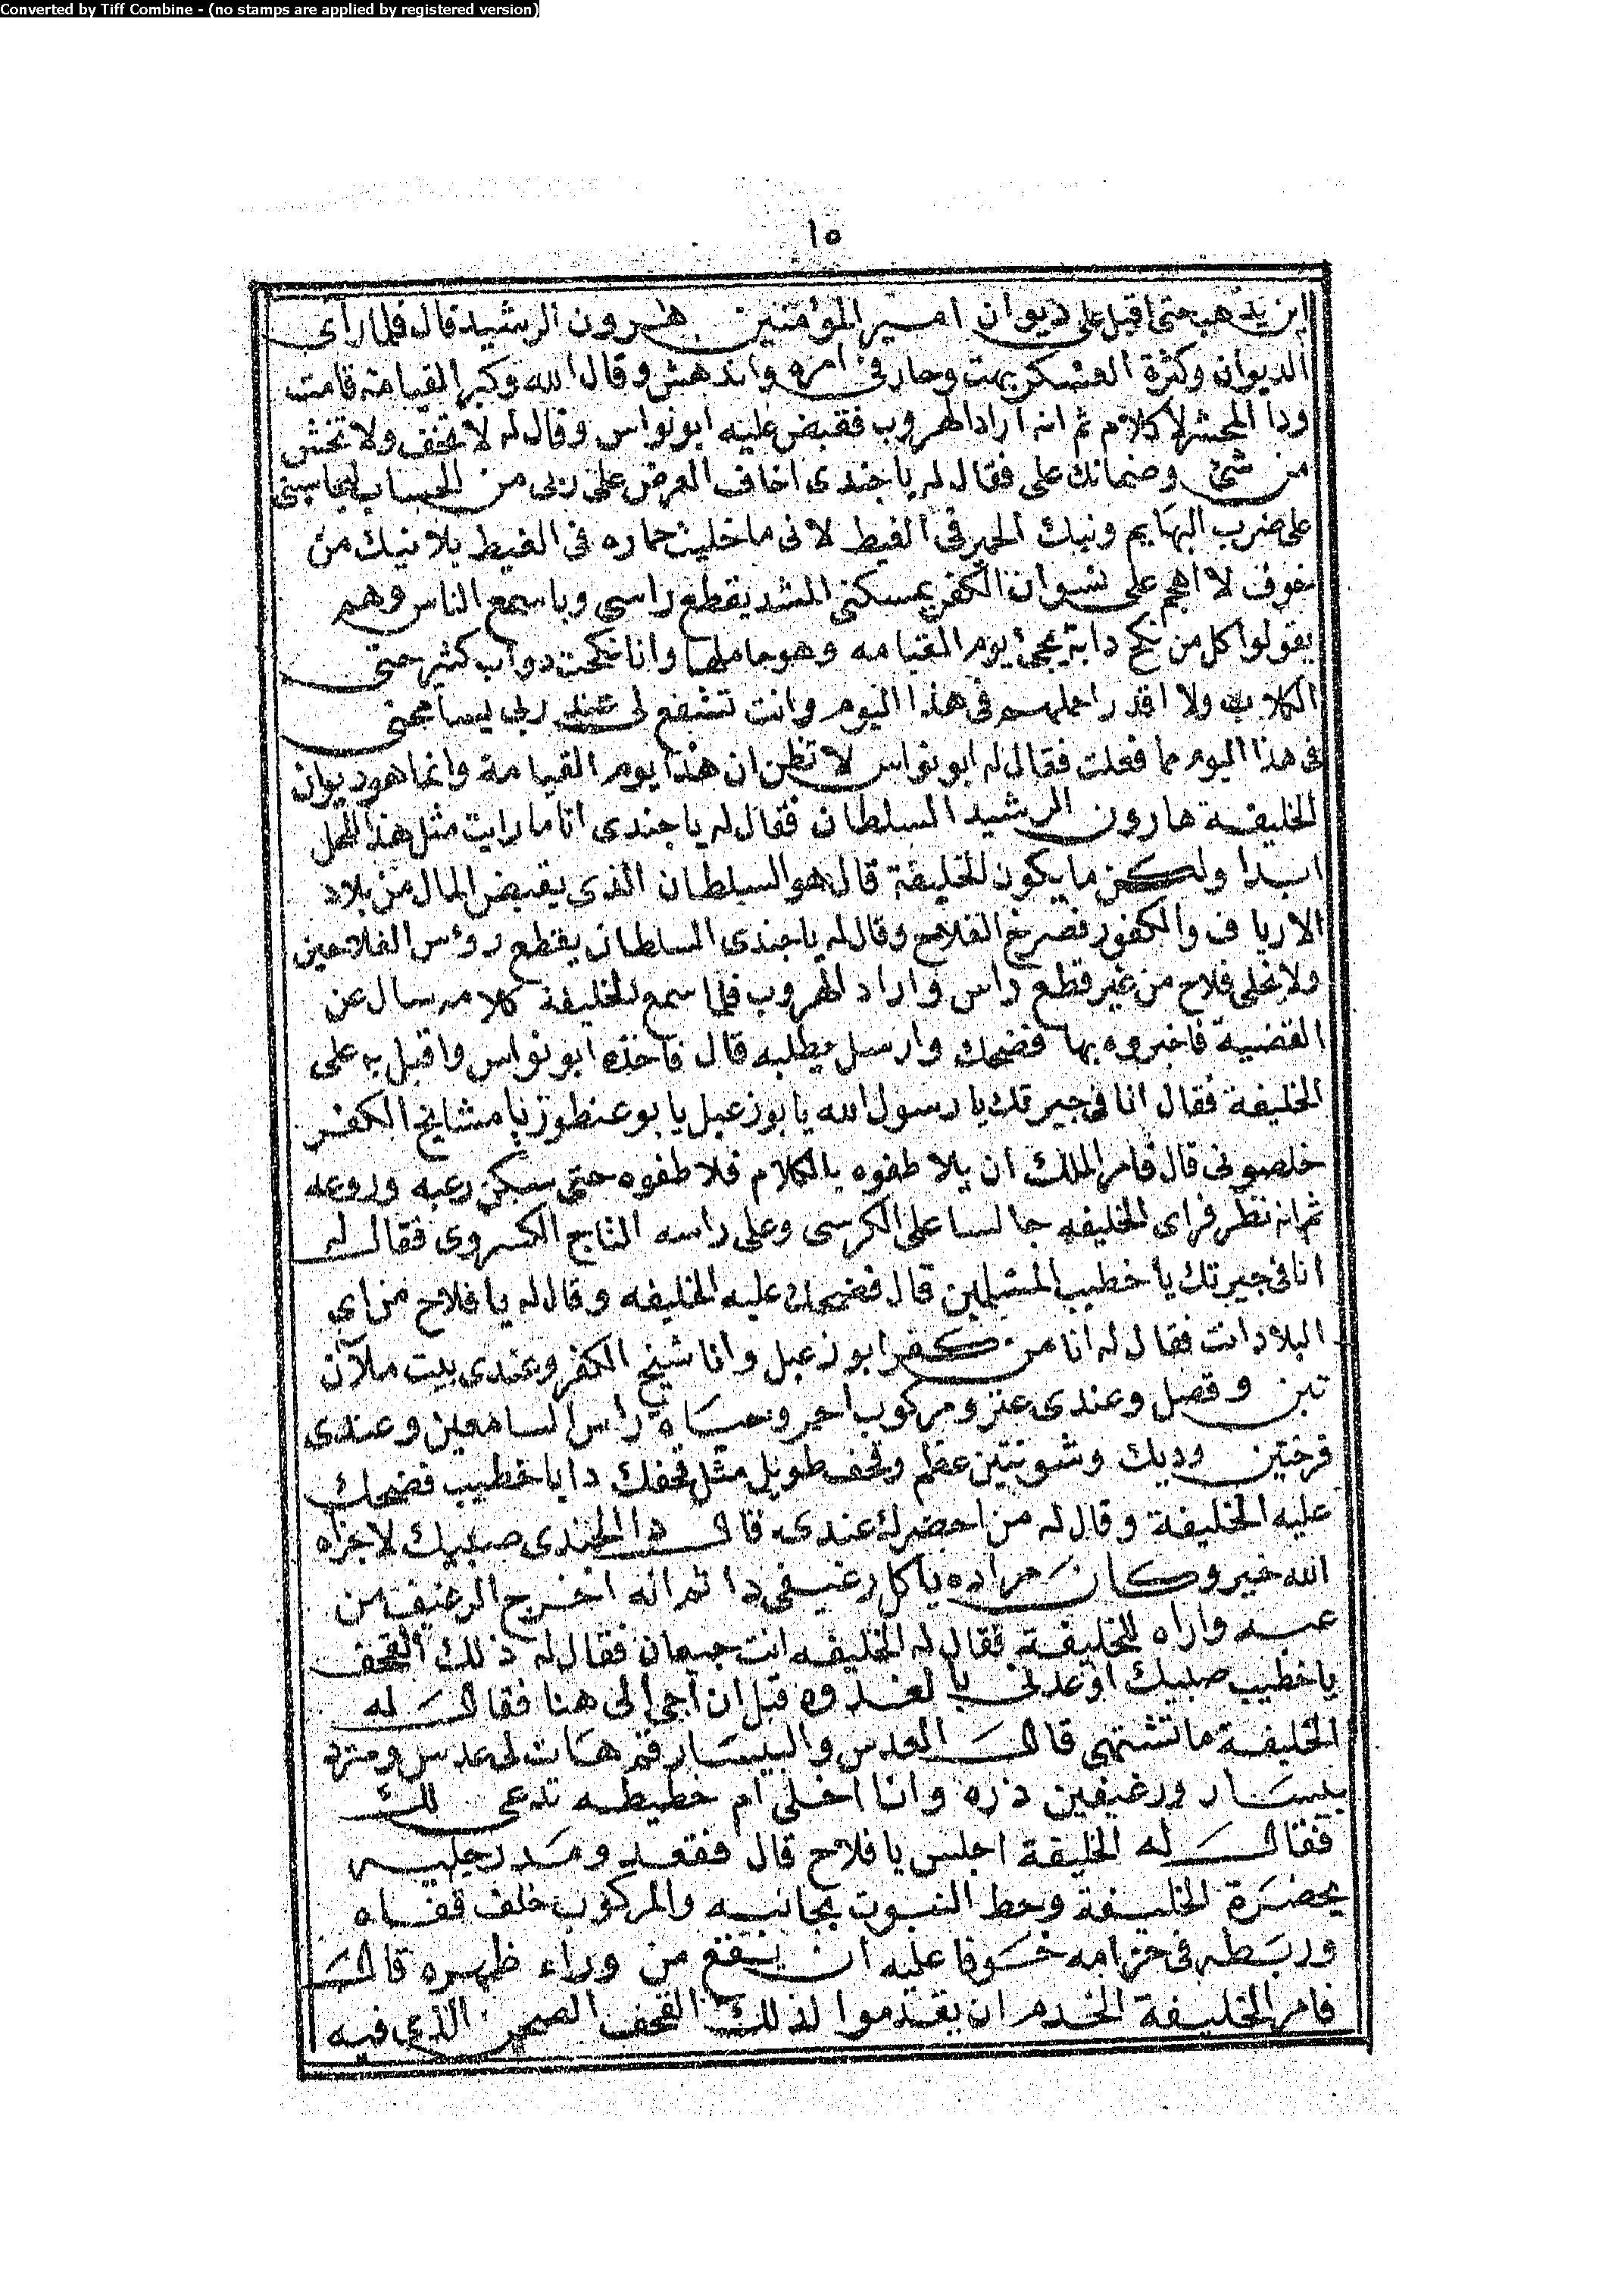 Converted by Tiff Combine - (no stamps are applied by registered version)
١٥
اين يذهب حتى اقبل على ديوان امير المؤمنين هرون الرشيد قال فلما رأى
الديوان وكثرة العسكر بهت وحار فى امره واندهش وقال الله وكبر القيامة قامت
ودا المحشر لا كلام ثم انه اراد الهروب فقبض عليه ابو نواس وقال له لا تخف ولا تخش
من شئ وضمانك على فقال له يا جندى اخاف العرض على ربى من الحساب ليحاسبنى
على ضرب البهايم ونيك الحمير فى الغيط لانى ما خليت حماره فى الغيط بلا نيك من
خوف لا اهجم على نسوان الكفر يمسكنى المشد يقطع راسى وباسمع الناس وهم
يقولوا كل من نكح دابة يجئ يوم القيامه وهو حاملها وانا نكحت دواب كثير حتى
الكلاب ولا اقدر احملهم فى هذا اليوم وانت تشفع لى عند ربى يسامحنى
فى هذا اليوم مما فعلت فقال له ابو نواس لا تظن ان هذا يوم القيامة وانما هو ديوان
الخليفة هارون الرشيد السلطان فقال له يا جندى انا ما رايت مثل هذا المحل
ابدا ولكن ما يكون الخليفة قال هو السلطان الذى يقبض المال من بلاد
الارياف والكفور فصرخ الفلاح وقال له يا جندى السلطان يقطع رؤس الفلاحين
ولا يخلى فلاح من غير قطع راس واراد الهروب فلما سمع الخليفة كلامه سال عن
القضية فاخبروه بها فضحك وارسل يطلبه قال فاخذه ابو نواس واقبل به على
الخليفة فقال انا فى جيرتك يا رسول الله يا بو زعبل يا بو عنطوز يا مشايخ الكفر
خلصونى قال فامر الملك ان يلاطفوه بالكلام فلاطفوه حتى سكن رعبه وروعه
ثم انه نظر فراى الخليفه جالسا على الكرسى وعلى راسه التاج الكسروى فقال له
انا فى جيرتك يا خطيب المسلمين قال فضحك عليه الخليفه وقال له يا فلاح من اى
البلاد انت فقال له انا من كفر ابو زعبل وانا شيخ الكفر وعندى بيت ملآن
تبن وقصل وعندى عنز ومركوب احمر وحساة راس السامعين وعندى
فرختين وديك وشونتين عظم وقحف طويل مثل قحفك دا يا خطيب فضحك
عليه الخليفة وقال له من احضرك عندى قال دا الجندى صبيك لا جزاه
الله خير وكان مراده ياكل رغيفى دا ثم انه اخرج الرغيف من
عبه واراه للخليفة فقال له الخليفه انت جيعان فقال له ذلك القحف
يا خطيب صبيك اوعدنى بالغدوه قبل ان اجى الى هنا فقال له
الخليفة ما تشتهى قال العدس والبيسار قم هات لى عدس ومترد
بيسار ورغيفين ذره وانا اخلى ام خطيطه تدعى لك
فقال له الخليفة اجلس يا فلاح قال فقعد ومد رجليه
بحضرة الخليفة وحط النبوت بجانبه والمركوب خلف قفاه
وربطه فى حزامه خوفا عليه ان يقع من وراء ظهره قال
فامر الخليفة الخدم ان يقدموا لذلك القحف الصحن الذى فيه